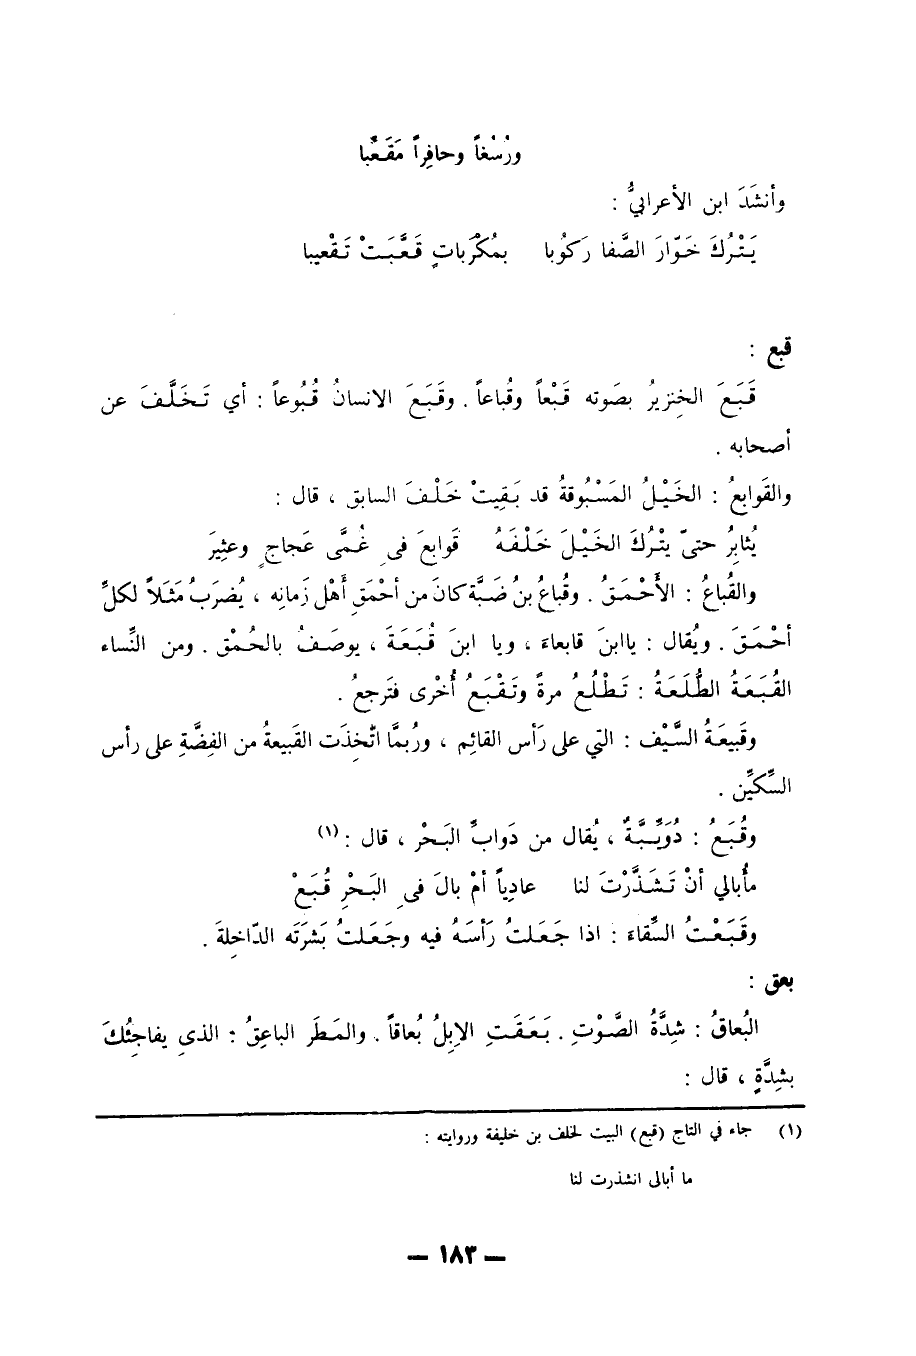 ورُسْغاً وحافِراً مَقَعَّبا
وأنشَدَ ابن الأعرابيُّ :
يَتْرُكَ خَوّارَ الصَّفا رَكُوبا   بمُكْرَباتٍ قَعَّبَتْ تَقْعيبا
قبع :
قَبَعَ الخِنزيرُ بصَوته قَبْعاً وقُباعاً . وقَبَعَ الانسانُ قُبُوعاً : أي تَخَلَّفَ عن
أصحابه .
والقَوابعُ : الخَيْلُ المَسْبُوقةُ قد بَقِيتْ خَلْفَ السابق ، قال :
يُثابِرُ حتىّ يتْرُكَ الخَيْلَ خَلْفَهُ   قَوابعَ في غُمَّى عَجاجٍ وعثِيَرَ
والقُباعُ : الأَحْمَقُ . وقُباعُ بنُ ضَبَّة كانَ من أحْمَقِ أَهْل زَمانِه ، يُضرَبُ مَثَلاً لكلِّ
أحْمَقَ . ويُقال : ياابنَ قابعاءَ ، ويا ابنَ قُبَعَةَ ، يوصَفُ بالحُمْق . ومن النِّساء
القُبَعَةُ الطُّلَعَةُ : تَطْلُعُ مرةً وتَقْبَعُ أُخْرى فتَرجعُ .
وقَبيعَةُ السَّيْف : التي على رَأس القائِم ، ورُبمَّا اتُّخِذَت القَبيعةُ من الفِضَّةِ على رأس
السِّكيِّن .
وقُبَعُ : دُوَيِّبَّةٌ ، يُقال من دَوابِّ البَحْر ، قال :(١)
مأُبالي أنْ تَشَذَّرْتَ لنا   عادِياً أمْ بالَ في البَحْرِ قُبَعْ
وقَبَعْتُ السِّقاءَ : اذا جَعَلتُ رَأسَهُ فيه وجَعَلتُ بَشرَتَه الدّاخِلةَ .
بعق :
البُعاقُ : شِدَّةُ الصَّوْتِ . بَعَقَتِ الابِلُ بُعاقاً . والمَطَر الباعِقُ : الذي يفاجِئُكَ
بشِدَّةٍ ، قال :
(١) جاء في التاج (قبع) البيت لخلف بن خليفة وروايته :
ما أبالى انشذرت لنا
— ١٨٣ —